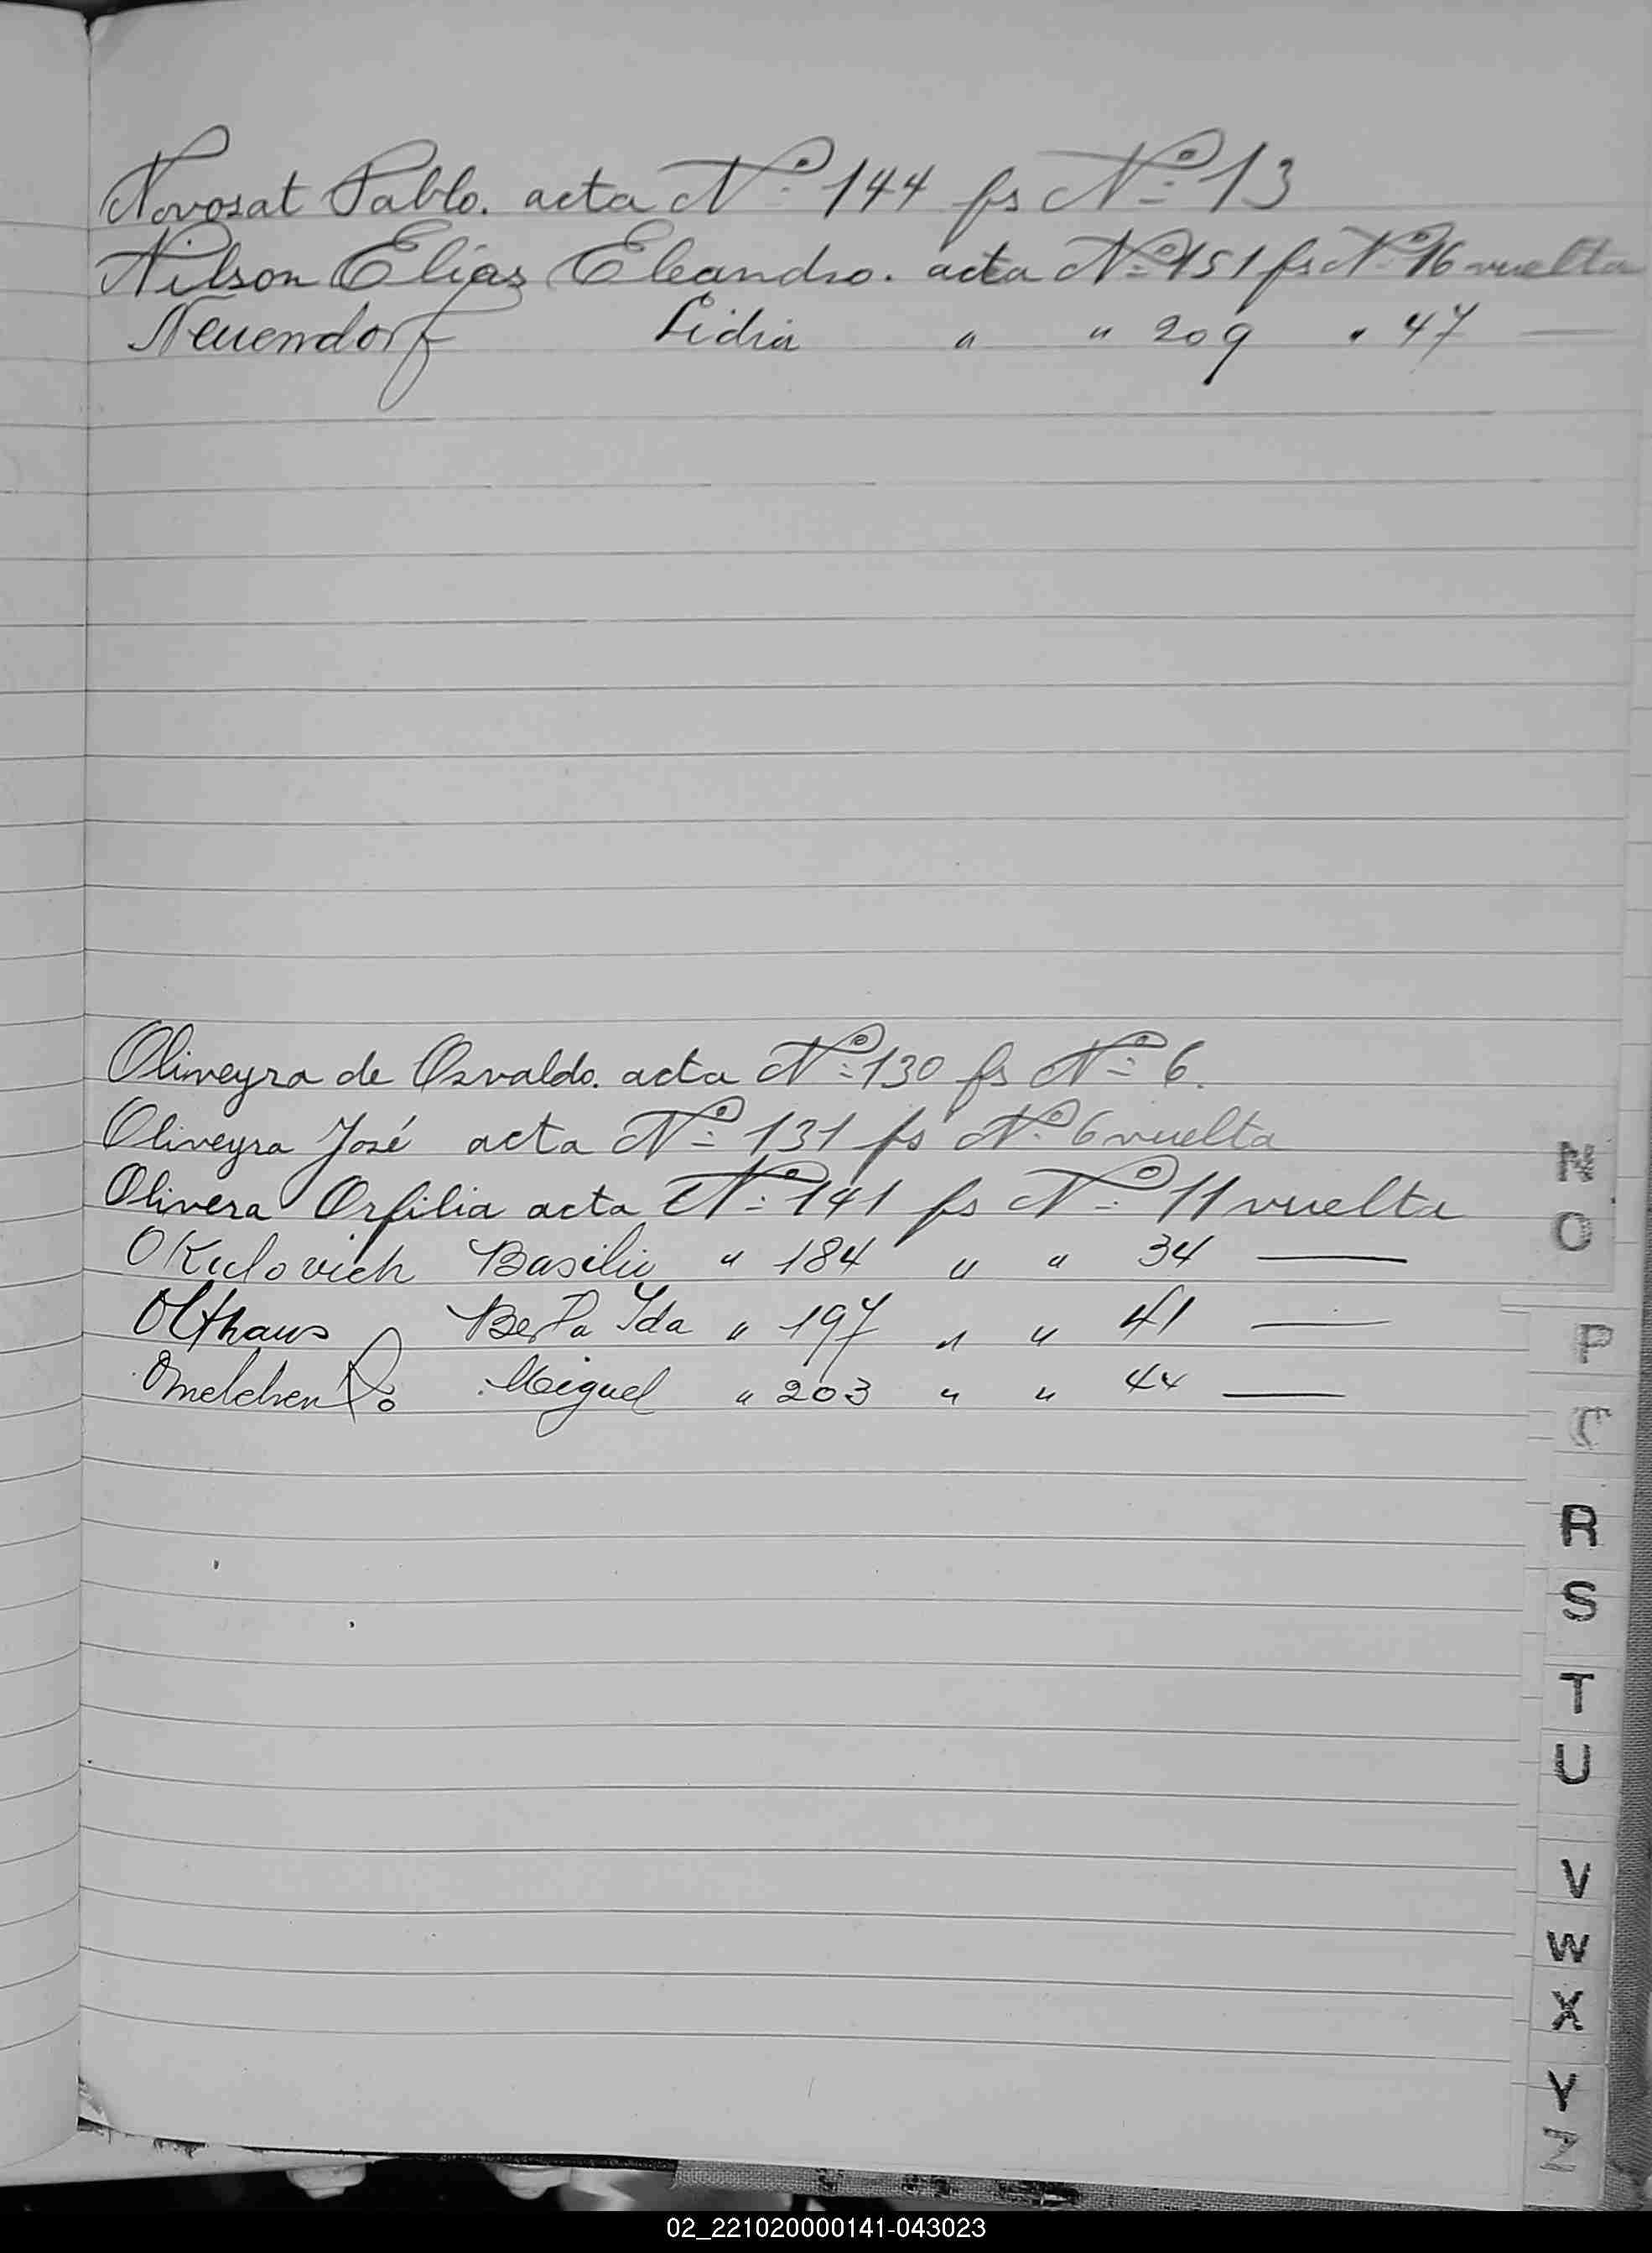 Novosat Pablo. acta Nº 144 fs Nº 13
Nilson Elías Eleandro. acta Nº 151 fs Nº 16 vuelta
Neuendorf Lidia " " 209 " 47 —
Oliveyra de Osvaldo. acta Nº 130 fs Nº 6.
Oliveyra José acta Nº 131 fs Nº 6 vuelta
Olivera Orfilia acta Nº 141 fs Nº 11 vuelta
OKulovich Basilio " 184 " " 34 —
Olthaus Berta Ida " 197 " " 41 —
Omelchenko Miguel " 203 " " 44 —
N
O
P
C
R
S
T
U
V
W
X
Y
Z
02_221020000141-043023